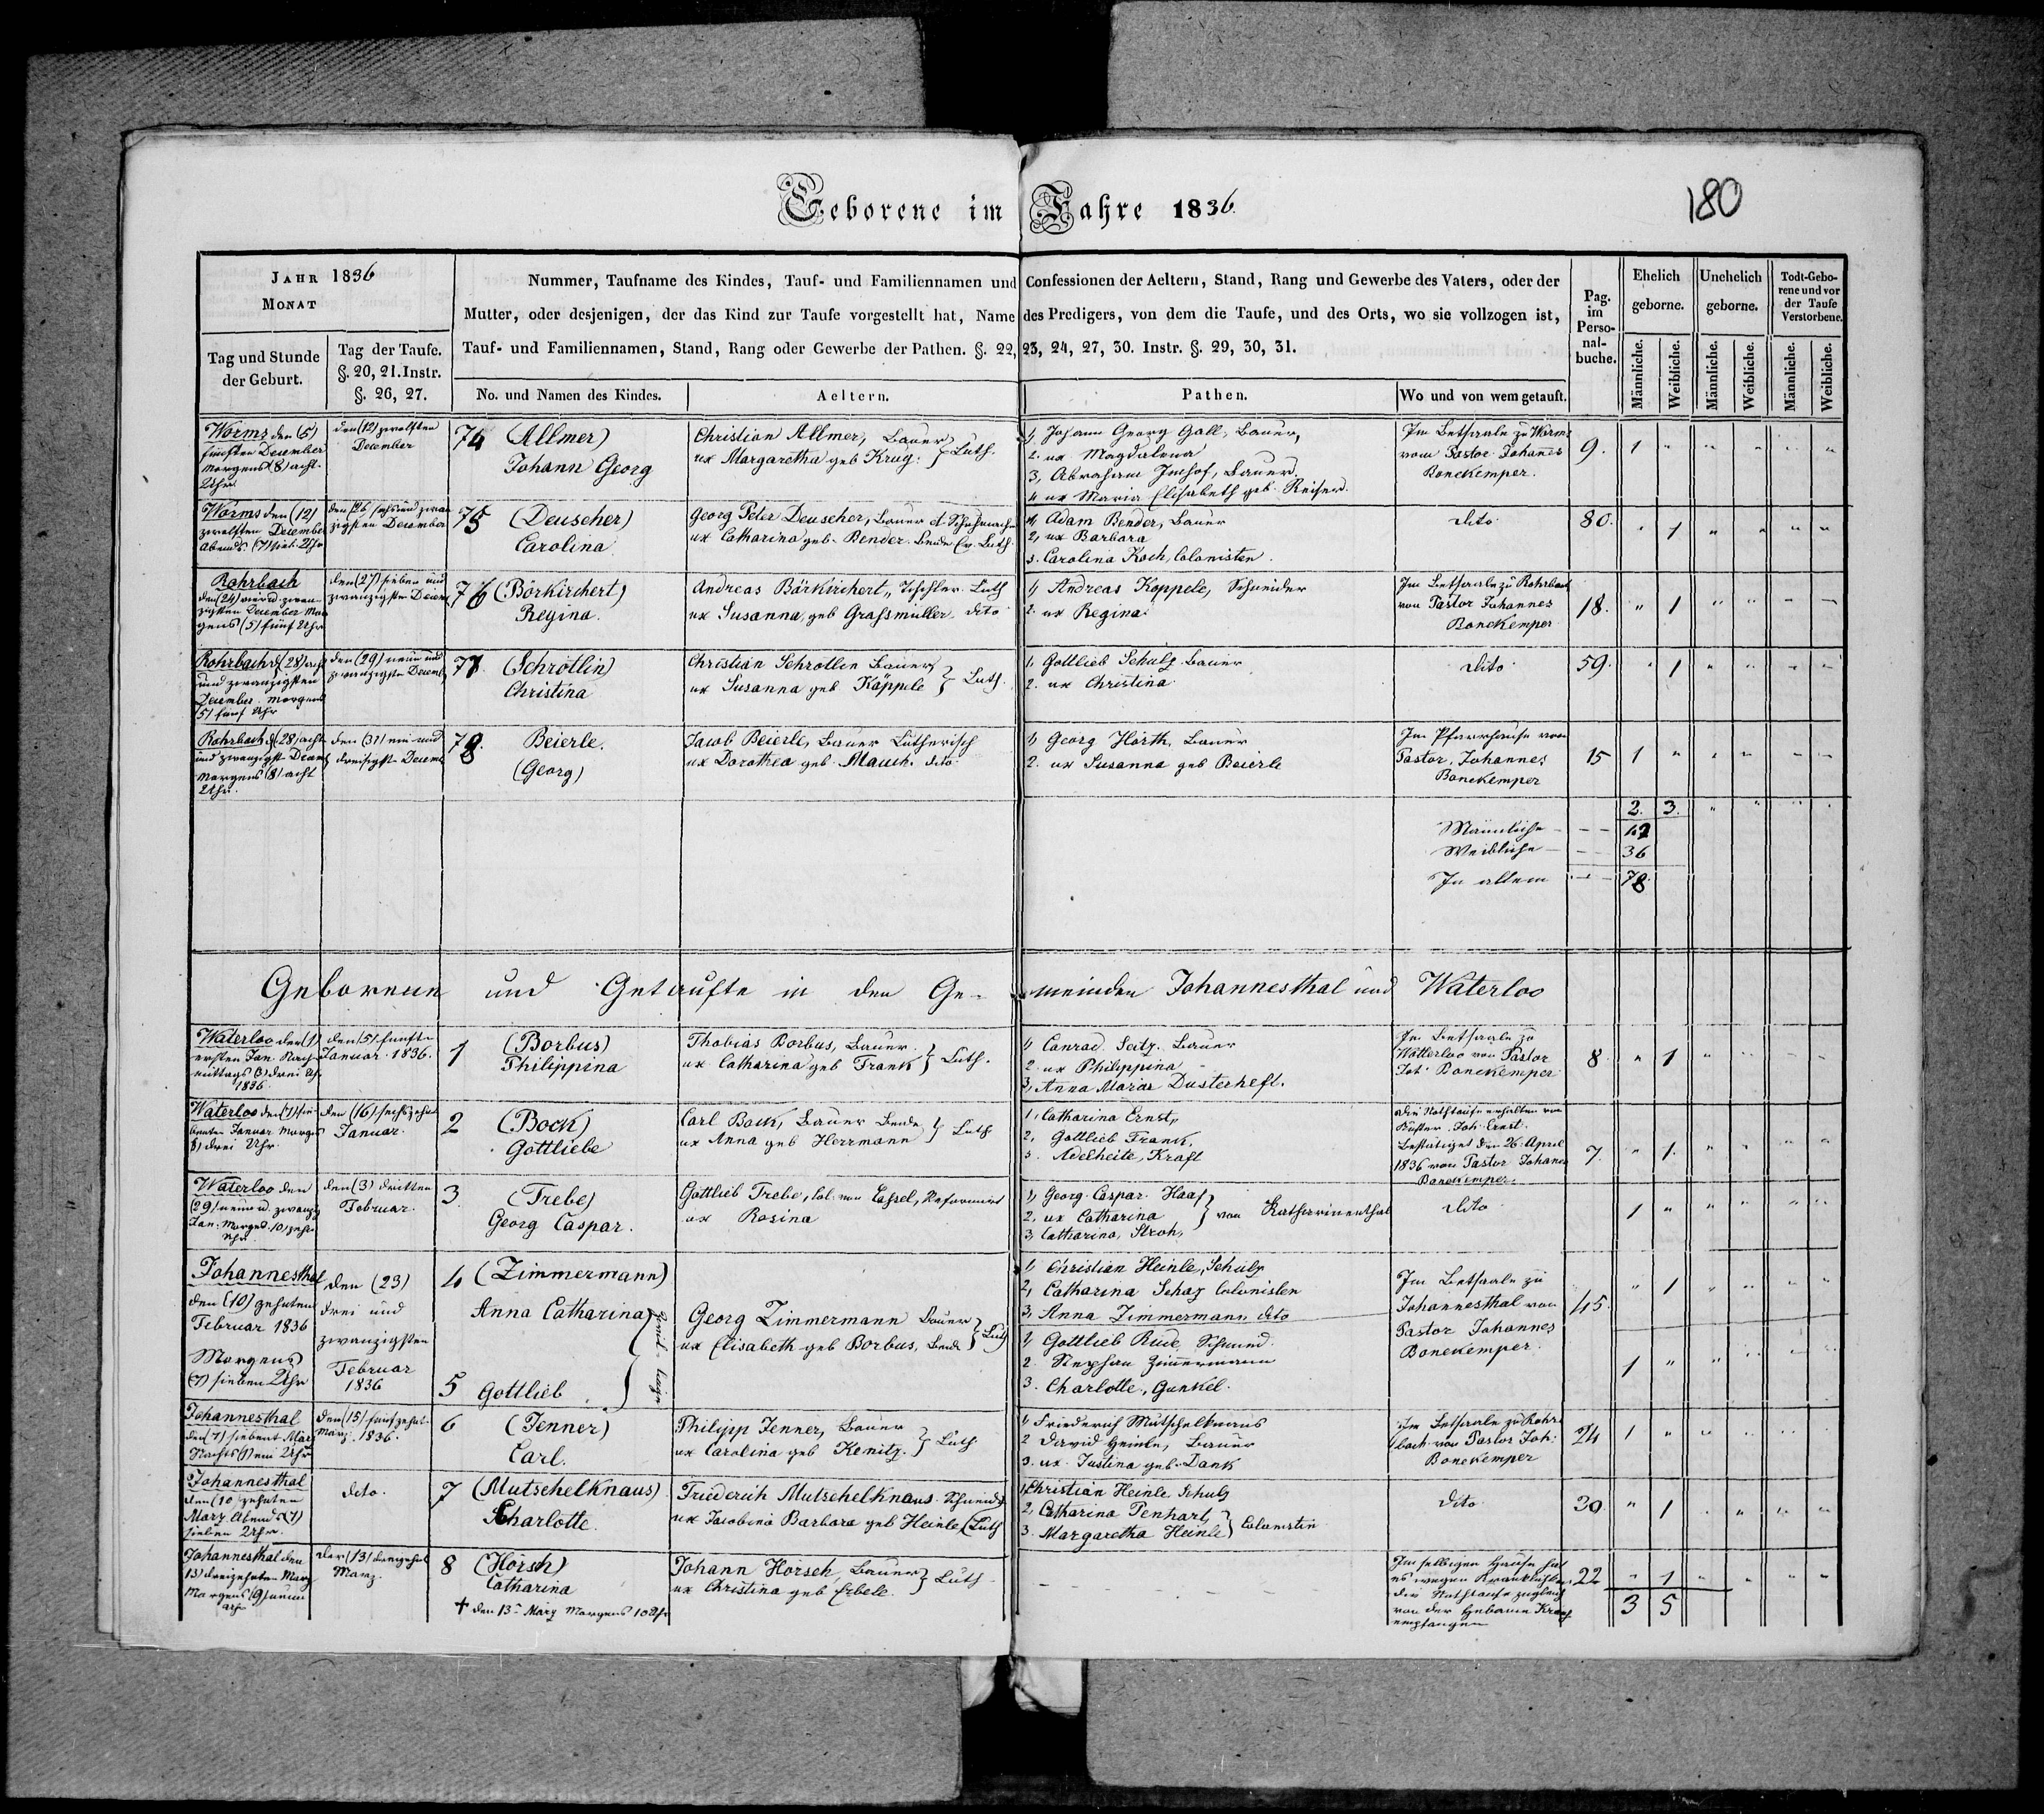 Geborene im Jahre 1836.
180
JAHR 1836
MONAT
Tag und Stunde
der Geburt.
Tag der Taufe.
§. 20, 21. Instr.
§. 26, 27.
Nummer, Taufname des Kindes, Tauf- und Familiennamen und Confessionen der Aeltern, Stand, Rang und Gewerbe des Vaters, oder der
Mutter, oder desjenigen, der das Kind zur Taufe vorgestellt hat, Name des Predigers, von dem die Taufe, und des Orts, wo sie vollzogen ist,
Tauf- und Familiennamen, Stand, Rang oder Gewerbe der Pathen. §. 22, 23, 24, 27, 30. Instr. §. 29, 30, 31.
No. und Namen des Kindes.
Aeltern.
Pathen.
Wo und von wem getauft.
Pag.
im
Perso-
nal-
buche.
Ehelich
geborne.
Unehelich
geborne.
Todt-Gebo-
rene und vor
der Taufe
Verstorbene.
Männliche.
Weibliche.
Männliche.
Weibliche.
Männliche.
Weibliche.
Worms den (5)
fünften December
Morgens (8) acht
Uhr.
den (12) zwölften
December
74 (Allmer)
Johann Georg
Christian Allmer, Bauer
ux Margaretha geb Krug. } Luth.
1, Johann Georg Gall, Bauer,
2. ux Magdalena
3, Abraham Imhof, Bauer.
4 ux Maria Elisabeth geb. Reiser.
Im Bethsaale zu Worms
vom Pastor Johanes
Bonekemper.
9. 1 " " " " "
Worms den (12)
zwölften December
Abends (7) sieb. Uhr
den (26) sechs und zwan
zigsten December
75 (Deuscher)
Carolina
Georg Peter Deuscher, Bauer et Schuhmacher
ux Catharina geb. Bender. beide Ev. Luth.
1, Adam Bender, Bauer
2, ux Barbara
3. Carolina Koch, Colonisten.
dito
80. " 1 " " " "
Rohrbach
den (24) vier u. zwan-
zigsten December Mor
gens (5) fünf Uhr
den (27) sieben und
zwanzigsten Decemb
76 (Börkirchert)
Regina.
Andreas Börkirchert, Tischler Luth
ux Susanna, geb Grassmüller dito
1, Andreas Koppele, Schneider
2. ux Regina
Im Bethsaale zu Rohrbach
von Pastor Johannes
Bonekemper
18. " 1 " " " "
Rohrbach d (28) acht
und zwanzigsten
December Morgens
(5) fünf Uhr
den (29) neun und
zwanzigsten Decemb
77. (Schrötlin)
Christina
Christian Schrotlin Bauer
ux Susanna geb Käppele } Luth.
1, Gottlieb Schulz Bauer
2. ux Christina
dito
59. " 1 " " " "
Rohrbach d (28) acht
und zwanzigst Decemb
Morgens (8) acht
Uhr.
den (31) ein und
dreisigsten Decemb
78. Beierle.
(Georg)
Jacob Beierle, Bauer Lutherisch
ux Dorothea geb Mauch. dito
1, Georg Hörth, Bauer
2. ux Susanna geb Beierle
Im Pfarrhause von
Pastor, Johannes
Bonekemper
15 1 " " " " "
2. 3. " " " "
Männliche - - - 42
Weibliche - - 36
In allem - - 78
Geborene und Getaufte in den Ge-meinden Johannesthal und Waterloo
Waterloo den (1)
ersten Jan. Nach-
mittags (3) drei Uhr
1836.
den (5) fünften
Januar 1836.
1 (Borbus)
Philippina
Thobias Borbus, Bauer.
ux Catharina geb Frank } Luth.
1, Conrad Seitz. Bauer
2. ux Philippina
3, Anna Maria Dusterheft.
Im Bethsaale zu
Watterloo von Pastor
Joh. Bonekemper
8 " 1 " " " "
Waterloo den (7) sie
benten Januar Morgens
(3) drei Uhr
den (16) sechszehnt
Januar.
2 (Bock)
Gottliebe
Carl Bock, Bauer Beide
ux Anna geb Herrmann } Luth
1, Catharina Ernst,
2, Gottlieb Frank,
3. Adelheite, Kraft
die Nothtaufe erhalten von
Küster. Joh. Ernst.
bestätiget den 26. April
1836 von Pastor Johanes
Bonekemper.
7. " 1. " " " "
Waterloo den
(29) neun u. zwanzig
Jan. Morgens 10 zehn
Uhr.
den (3) dritten
Februar.
3. (Trebe)
Georg Caspar.
Gottlieb Trebe, Col. von Cassel, Reformirt
ux Rosina
1, Georg Caspar Haas
2, ux Catharina } von Katharinenthal
3, Catharina, Stroh,
dito
1 " " " " "
Johannesthal
den (10) zehnten
Februar 1836
Morgens
(7) sieben Uhr
den (23)
drei und
zwanzigsten
Februar
1836
4 (Zimmermann)
Anna Catharina
5 Gottlieb
Georg Zimmermann Bauer
ux Elisabeth geb Borbus, Beide } Luth
1, Christian Heinle, Schulz
2, Catharina Schaz Colonisten
3, Anna Zimmermann dito
1, Gottlieb Rude, Schmid.
2. Stephan Zimmermann
3. Charlotte, Gunkel.
Im Bethsaale zu
Johannesthal von
Pastor Johannes
Bonekemper.
45. " 1 " " " "
1 " " " " "
Johannesthal
den (7) siebent März
Nachts (1) ein Uhr
den (15) fünfzehnt.
März 1836.
6 (Jenner)
Carl.
Philipp Jenner, Bauer
ux Carolina geb Kenitz. } Luth.
1, Friederich Mutschelknaus
2 David Heinle, Bauer
3. ux Justina geb. Dank
Im Bethsaale zu Rohr-
bach von Pastor Joh.
Bonekemper
24 1 " " " " "
Johannesthal
den (10) zehnten
März Abends (7)
sieben Uhr.
dito.
7 (Mutschelknaus)
Charlotte.
Friederich Mutschelknaus Schneid
ux Jacobina Barbara geb Heinle } Luth
1, Christian Heinle Schulz
2, Catharina Penhart,
3. Margaretha Heinle } Colonistin
dito
30. " 1 " " " "
Johannesthal den
13) dreizehnten März
Morgens (9) neun
Uhr
den (13) dreizehnt
März.
8 (Hörsch)
Catharina
† den 13ten März Morgens 10 Uhr
Johann Hörsch, Bauer
ux Christina geb Erbele. } Luth
Im selbigen Hause hat
es wegen
die Nothtaufe zugleich
von der Hebamme
empfangen
22 " 1 " " " "
3 5